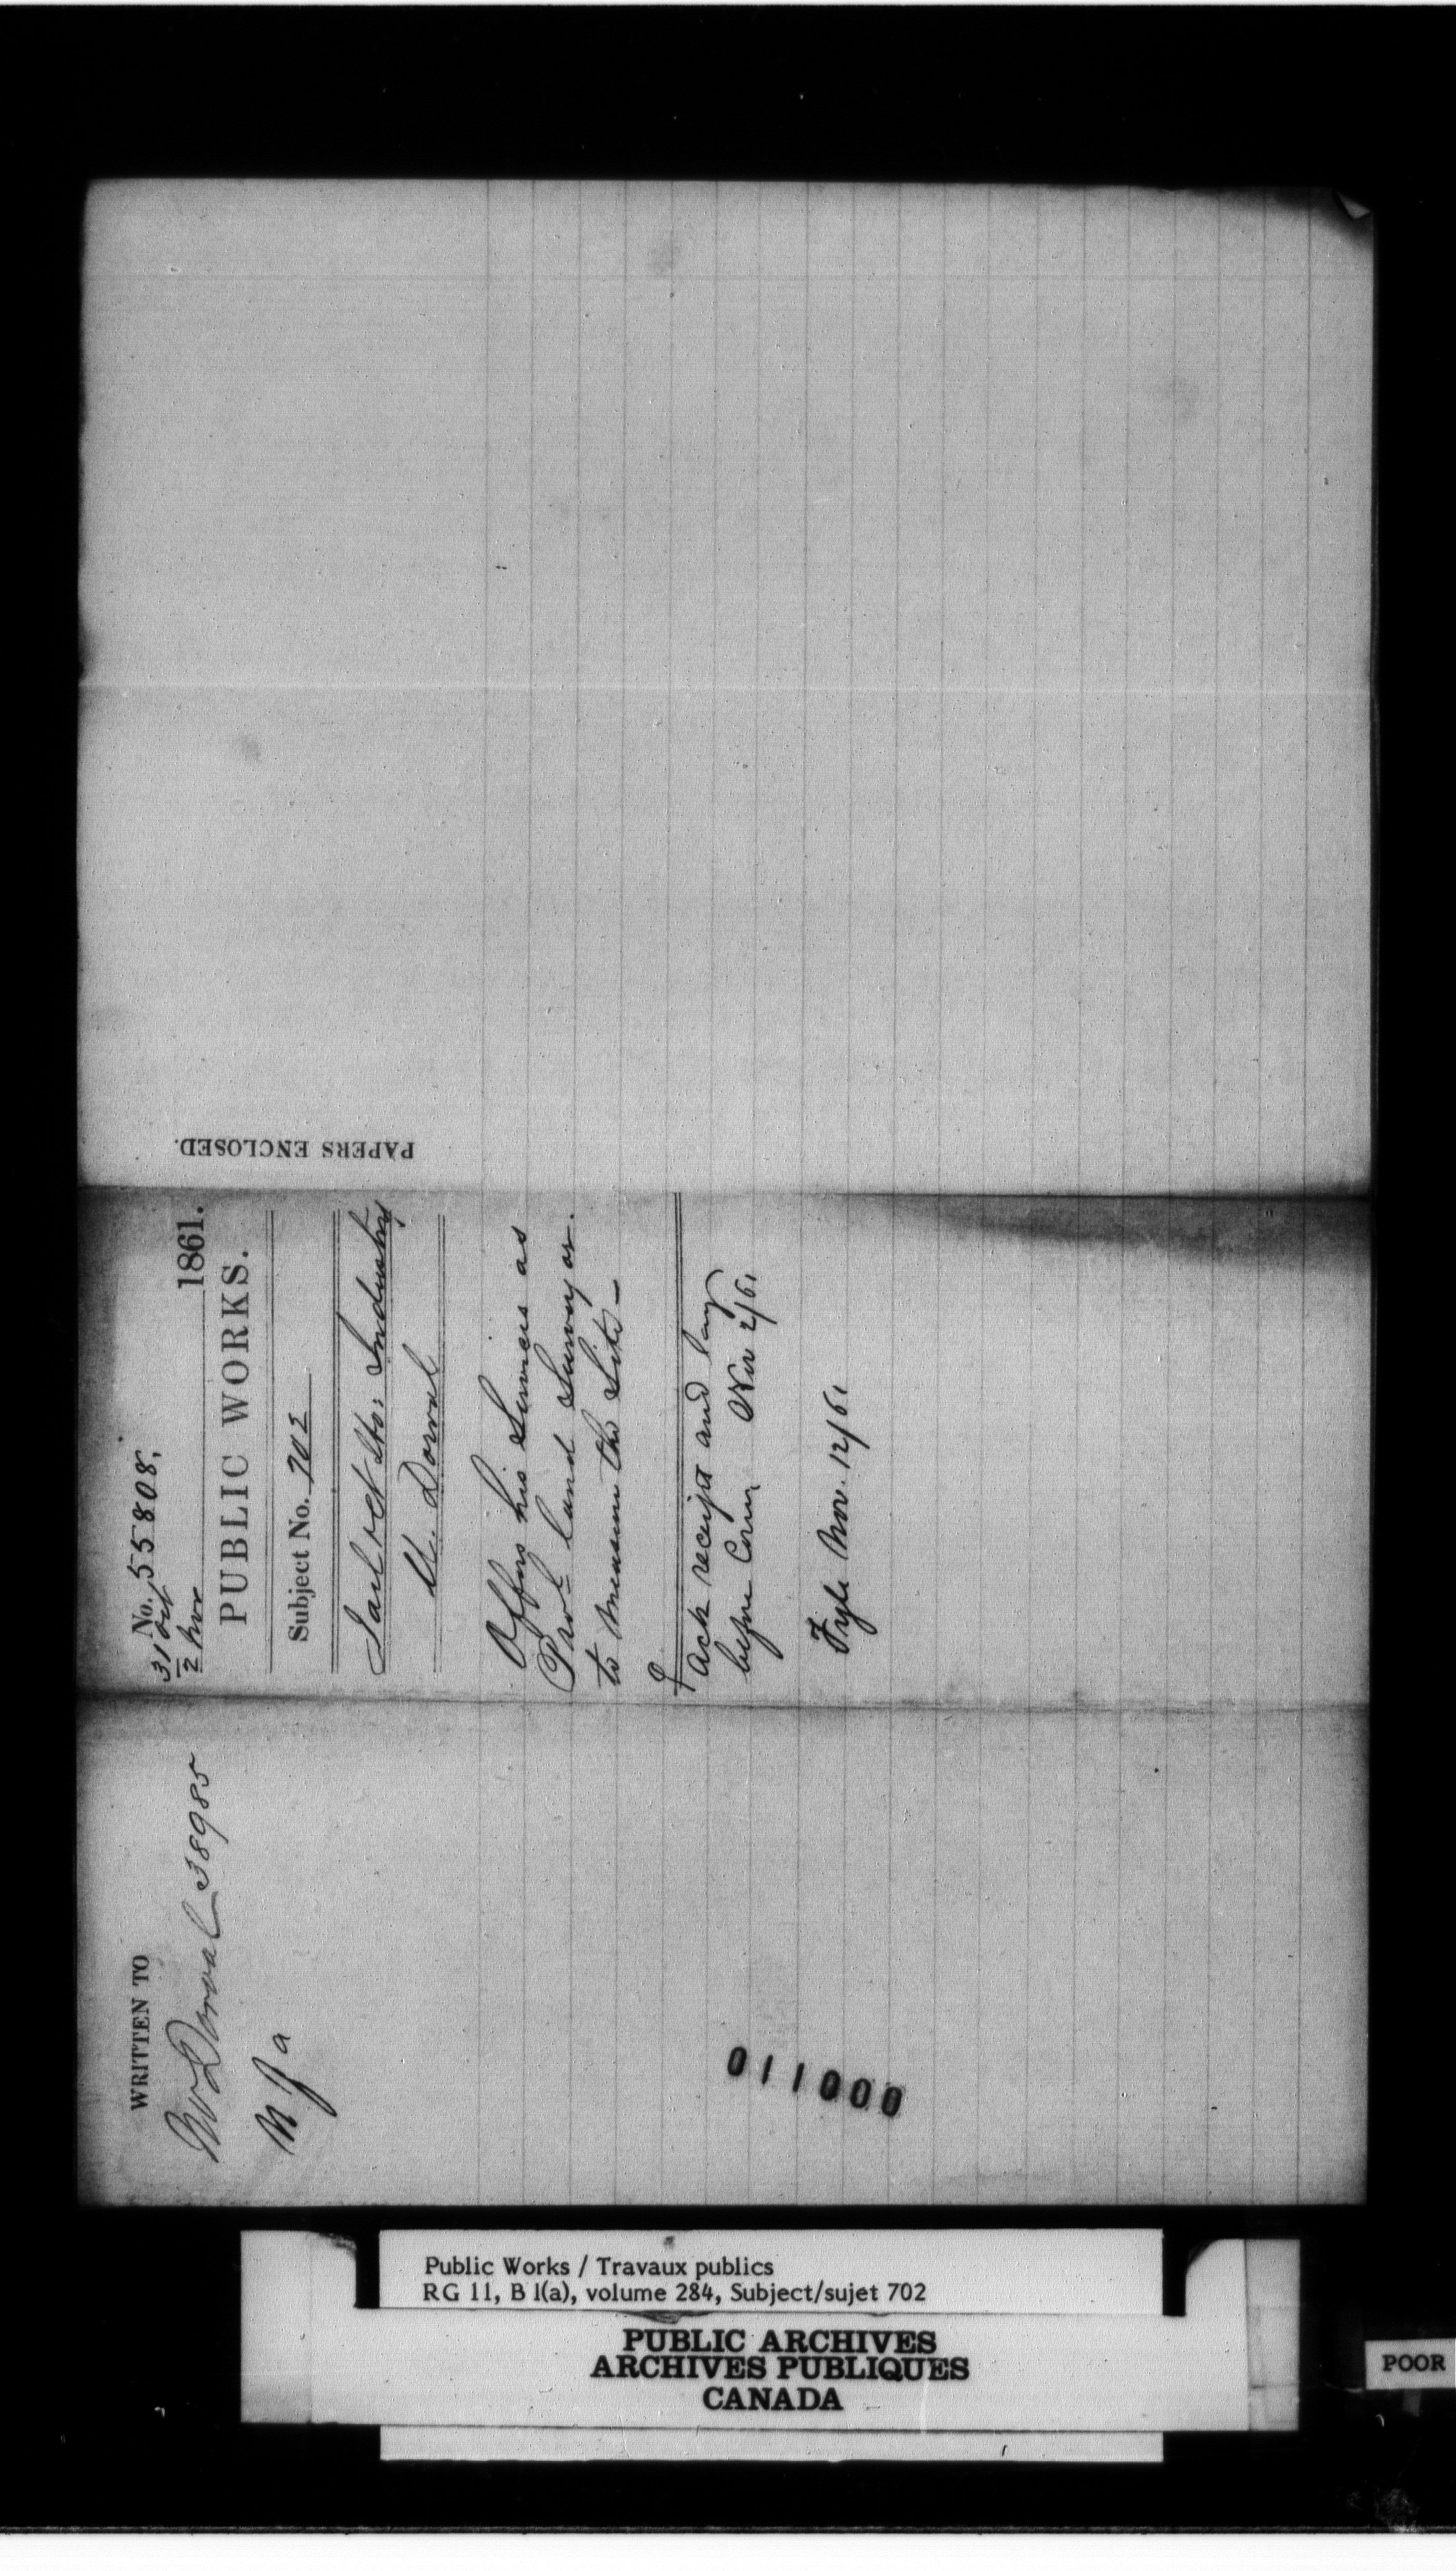 WRITTEN TO
Mr Dorval 38985
M J a
011000
No. 55808.
31 Oct
2 Nov 1861.
PUBLIC WORKS.
Subject No. 702
Jail &c Industry
U. Dorval
Offers his Services as
Prov. land Surveyor
to measure the Site—
Ack receipt and lay
before Com Nov 2/61
Fyle Nov. 12/61
PAPERS ENCLOSED.
Public Works / Travaux publics
RG 11, B 1(a), volume 284, Subject/sujet 702
PUBLIC ARCHIVES
ARCHIVES PUBLIQUES
CANADA
POOR